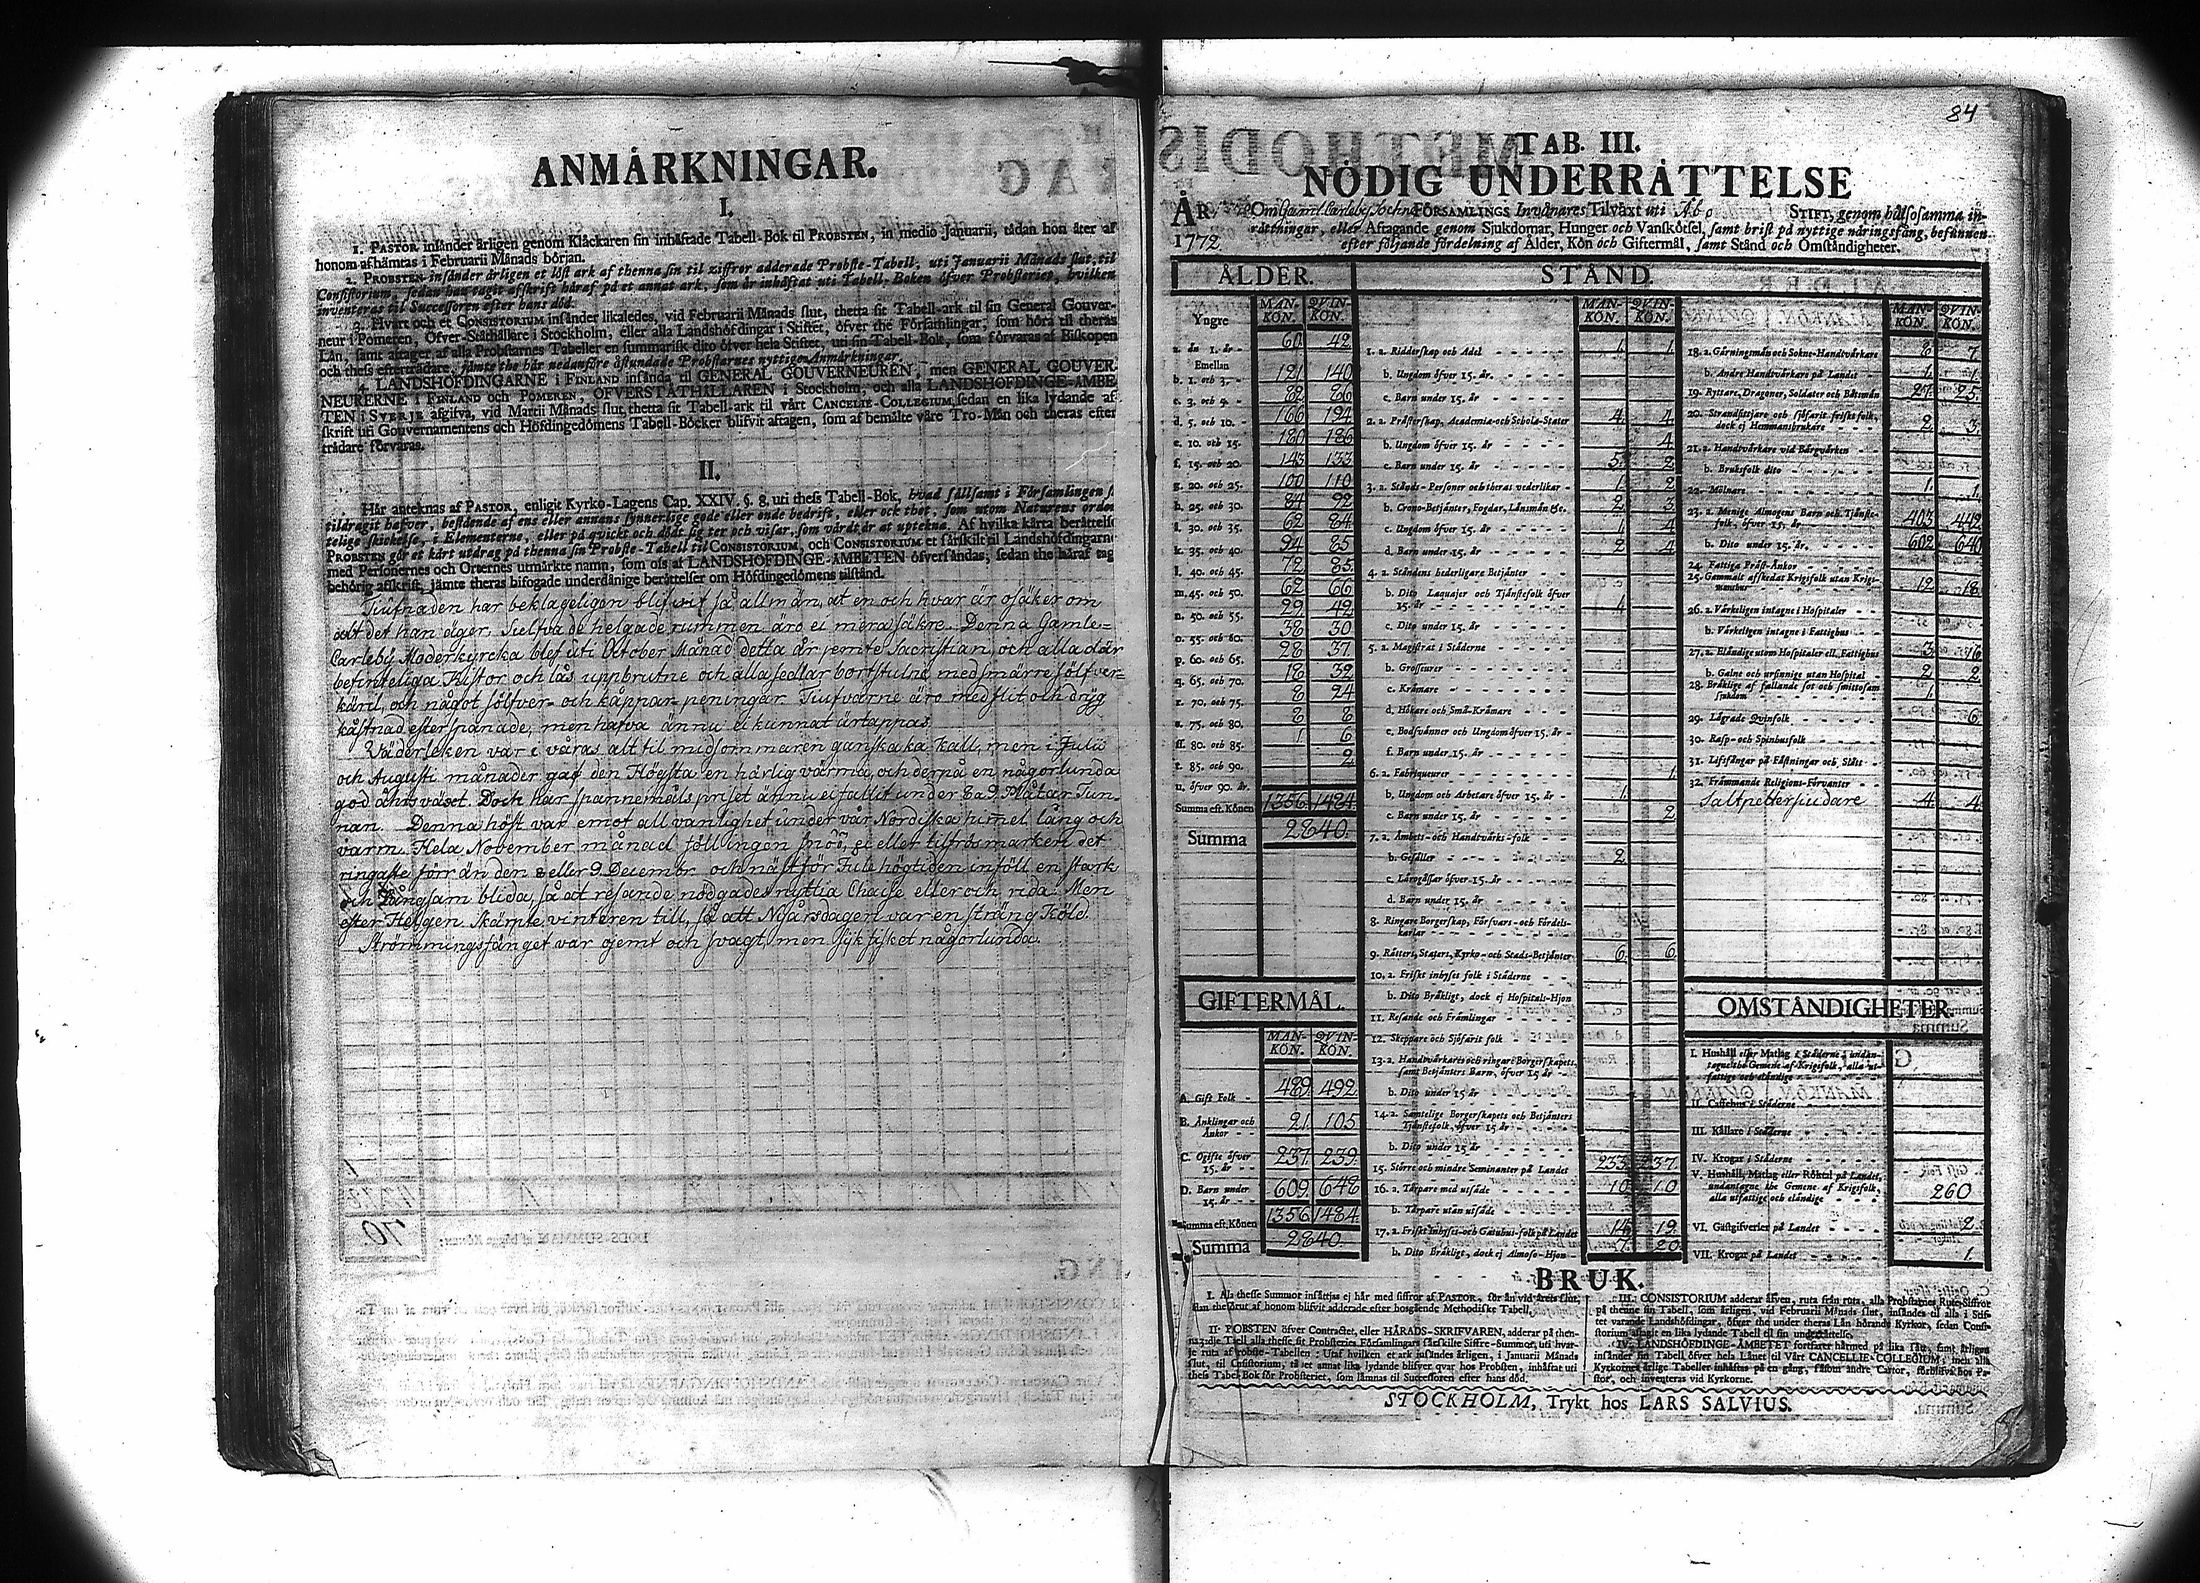 ANMÄRKNINGAR.
I.
1. PASTOR insänder ärligen genom Klåckaren sin inhäftade Tabell-Bok til PROBSTEN, in medio Januarii, tådan hon åter af
honom afhämtas i Februarii Månads början.
2. PROBSTEN insänder årligen et löst ark af thenna sin til ziffror adderade Probste-Tabell, uti Januarii Månads slut, til
Consistorium, sedan han tagit afskrift häraf på et annat ark, som är inhäftat uti Tabell-Boken öfver Probsteriet, hvilken
inventeras til Successoren efter hans död.
3. Hvart och et CONSISTORIUM insänder likaledes, vid Februarii Månads slut, thetta sit Tabell-ark til sin General Gouver-
neur i Pomeren, Öfver-Ståthållare i Stockholm, eller alla Landshöfdingar i Stiftet, öfver the Församlingar, som höra til theras
Län, samt aftager af alla Probstarnes Tabeller en summarisk dito öfver hela Stiftet, uti sin Tabell-Bok, som förvaras af Biskopen
och thess efterträdare, jämte the här nedanföre åstundade Probstarnes nyttige Anmärkningar.
4. LANDSHÖFDINGARNE i FINLAND insända til GENERAL GOUVERNEUREN, men GENERAL GOUVER-
NEURERNE i FINLAND och POMEREN, ÖFVERSTÅTHÅLLAREN i Stockholm, och alla LANDSHÖFDINGE-ÄMBE
TEN i SVERJE afgifva, vid Martii Månads slut, thetta sit Tabell-ark til vårt CANCELIE-COLLEGIUM, sedan en lika lydande af-
skrift uti Gouvernamentens och Höfdingedömens Tabell-Böcker blifvit aftagen, som af bemälte våre Tro-Män och theras efter
trädare förvaras.
II.
Här anteknas af PASTOR, enligit Kyrko-Lagens Cap. XXIV. §. 8. uti thess Tabell-Bok, hvad sällsamt i Församlingen
tildragit hafver, bestående af ens eller annans synnerlige gode eller onde bedrift, eller ock thet, som utom Naturens orden
telige skickelse, i Elementerne, eller på qvickt och dödt sig ter och visar, som värdt är at uptekna. Af hvilka kårta berättelse
PROBSTEN gör et kårt utdrag på thenna sin Probste-Tabell til CONSISTORIUM, och CONSISTORIUM et särskilt til Landshöfdingarne
med Personernes och Orternes utmärkte namn, som ofs af LANDSHÖFDINGE-ÄMBETEN öfversändas, sedan the häraf tag
behörig afskrift, jämte theras bifogade underdånige berättelser om Höfdingedömens tilstånd.
Tiufnaden har beklageligen blifvit så allmän, at en och hvar är osäker om
alt det han äger. Sielfva de helgade rummen äro ei mera säkre. Denna Gamle-
Carleby Moderkyrcka blef uti October Månad detta år jemte Sacristian, och alla där
befinteliga Kistor och lås uppbrutne och alla sedlar bortstulne med smärre sölfver-
käril, och något sölfver- och kåppar-peningar. Tiufvarne äro med flit och dryg
kåstnad efterspanade, men hafva ännu ei kunnat ertappas.
Väderleken var i våras alt til midsommaren ganska kall, men i Julii
och Augusti månader gaf den Högsta en härlig värma, och derpå en någorlunda
god åhrsväxt. Doch har spannemålspriset ännu ei fallit under 8 a 9 Plåtar Tun-
nan. Denna höst var emot all vanlighet under vår Nordiska himel lång och
varm. Hela November månad föll ingen snö, ei eller tilfrös marken det
ringaste förr än den 8 eller 9 Decembr. och näst för Jule högtiden inföll en stark
och långsam blida, så at resande nödgades nyttia Chaise eller och rida. Men
efter Helgen skärpte vinteren till, så att Nyårsdagen var en sträng Köld.
Strömmingsfånget var ojemt och svagt, men sijkfisket någorlunda.
84
TAB. III.
NÖDIG UNDERRÄTTELSE
ÅR 1772 Om Gaml Carleby Sochns FÖRSAMLINGS Invånares Tilväxt uti Åbo STIFT, genom hälsosamma in-
rättningar, eller Aftagande genom Sjukdomar, Hunger och Vanskötsel, samt brist på nyttige näringsfång, befunnen
efter följande fördelning af Ålder, Kön och Giftermål, samt Stånd och Omständigheter.
ÅLDER.
MAN-KÖN. QVIN-KÖN.
Yngre
a. än 1. år - 60 42
Emellan
b. 1. och 3. - 121 140
c. 3. och 5. - 82 86
d. 5. och 10. - 166 194
e. 10. och 15. 180 186
f. 15. och 20. 143 133
g. 20. och 25. 100 110
h. 25. och 30. 84 92
i. 30. och 35. 62 84
k. 35. och 40. 94 85
l. 40. och 45. 72 85
m. 45. och 50. 62 66
n. 50. och 55. 29 42
o. 55. och 60. 38 30
p. 60. och 65. 28 37
q. 65. och 70. 18 32
r. 70. och 75. 8 24
s. 75. och 80. 8 8
ss. 80. och 85. 1 6
t. 85. och 90. 2
u. öfver 90. år
Summa eft. Könen 1356 1484
Summa 2840
GIFTERMÅL.
MAN-KÖN. QVIN-KÖN.
A. Gift Folk - 489 492
B. Änklingar och Änkor - - 21 105
C. Ogifte öfver 15. år - - 237 239
D. Barn under 15. år - - 609 648
Summa eft. Könen 1356 1484
Summa 2840
STÅND.
MAN-KÖN. QVIN-KÖN.
1. a. Ridderskap och Adel 1 1
b. Ungdom öfver 15. år.
c. Barn under 15. år
2. a. Prästerskap, Academia-och Schola-Stater 4 4
b. Ungdom öfver 15. år 4
c. Barn under 15. år 5 2
3. a. Stånds-Personer och theras vederlikar - 1 2
b. Crono-Betjänter, Fogdar, Länsmän &c. 2 3
c. Ungdom öfver 15. år 1 4
d. Barn under 15. år 2 4
4. a. Ståndens hederligare Betjänter
b. Dito Laquajer och Tjänstefolk öfver 15. år 1
c. Dito under 15. år
5. a. Magistrat i Städerne
b. Grosseurer
c. Krämare
d. Hökare och Små-Krämare
e. Bodsvänner och Ungdom öfver 15. år -
f. Barn under 15. år
6. a. Fabriqueurer 1
b. Ungdom och Arbetare öfver 15. år - 1
c. Barn under 15. år 2
7. a. Ämbets-och Handtvärks-folk
b. Gesäller 2
c. Lärogåssar öfver 15. år
d. Barn under 15. år
8. Ringare Borgerskap, Försvars-och Fördels-karlar
9. Rätters, Staters, Kyrko-och Stads-Betjänter 6 6
10. a. Friskt inhyses folk i Städerne
b. Dito Bräkligt, dock ej Hospitals-Hjon
11. Resande och Främlingar
12. Skeppare och Sjöfarit folk
13. a. Handtvärkares och ringare Borgerskapets, samt Betjänters Barn, öfver 15 år
b. Dito under 15 år
14. a. Samtelige Borgerskapets och Betjänters Tjänstefolk, öfver 15 år
b. Dito under 15 år
15. Större och mindre Heminanter på Landet 233 237
16. a. Torpare med utsäde 10 10
b. Torpare utan utsäde
17. a. Friskt Inhyses-och Gatuhus-folk på Landet 14 19
b. Dito Bräkligt, dock ej Almoso-Hjon 7 20
MAN-KÖN. QVIN-KÖN.
18. a. Gärningsmän och Sokne-Handtvärkare 8 7
b. Andre Handtvärkare på Landet 1 1
19. Ryttare, Dragoner, Soldater och Båtsmän 27 25
20. Strandsittjare och sjöfarit friskt folk, dock ej Hemmansbrukare 2 3
21. a. Handtvärkare vid Bärgvärken
b. Bruksfolk dito
22. Mölnare 1 1
23. a. Menige Almogens Barn och Tjänste-folk, öfver 15. år 403 442
b. Dito under 15. år. 602 640
24. Fattiga Präst-Änkor
25. Gammalt afskedat Krigsfolk utan Krigs-mantur 12 18
26. a. Värkeligen intagne i Hospitaler
b. Värkeligen intagne i Fattighus
27. a. Eländige utom Hospitaler ell. Fattighus 3 16
b. Galne och ursinnige utan Hospital 2 2
28. Bräklige af fallande sot och smittosam sjukdom 1
29. Lägrade Qvinfolk 6
30. Rasp-och Spinhusfolk
31. Lifsfångar på Fästningar och Slått
32. Främmande Religions-Förvanter
Saltpettersiudare 4 4
OMSTÄNDIGHETER.
I. Hushåll eller Matlag i Städerne, undan-tagne the Gemene af Krigsfolk, alla ut-fattige och eländige
II. Caffehus i Städerne
III. Källare i Städerne
IV. Krogar i Städerne
V. Hushåll, Matlag eller Röktal på Landet, undantagne the Gemene af Krigsfolk, alla utfattige och eländige 260
VI. Gästgifverier på Landet 2
VII. Krogar på Landet 1
BRUK.
I. Alla thesse Summor insättjas ej här med siffror af PASTOR, för än vid årets slut,
sedan the förut af honom blifvit adderade efter hosgående Methodiske Tabell.
II. PROBSTEN öfver Contractet, eller HÄRADS-SKRIFVAREN, adderar på then-
na tredje Tabell alla thesse sit Probsteries Församlingars särskilte Siffre-Summor, uti hvar-
je ruta af Probste-Tabellen: Utaf hvilken et ark insändes årligen, i Januarii Månads
slut, til Consistorium, så et annat lika lydande blifver qvar hos Probsten, inhäftat uti
thess Tabell-Bok för Probsteriet, som lämnas til Successoren efter hans död.
III. CONSISTORIUM adderar äfven, ruta från ruta, alla Probstarnes Rute-Siffror
på thenne sin Tabell, som årligen, vid Februarii Månads slut, insändes til alla i Stif-
tet varande Landshöfdingar, öfver the under theras Län hörande Kyrkor, sedan Consi-
storium aftagit en lika lydande Tabell til sin underrättelse.
IV. LANDSHÖFDINGE-ÄMBETET fortfarer härmed på lika sätt, samt årligen
insänder sin Tabell öfver hela Länet til Vårt CANCELLIE-COLLEGIUM; men alla
Kyrkornes årlige Tabeller inhäftas på en gång, såsom andre Cartor, förblifva hos Pa-
stor, och inventeras vid Kyrkorne.
STOCKHOLM, Trykt hos LARS SALVIUS.